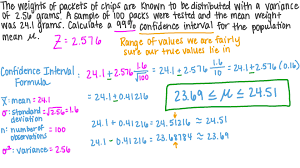 The weights of packets of chips are known to be distributed with a variance
of 2.56 grams. A sample of 100 packs were tested and the mean weight
was 24.1 grams. Calculate a 99% confidence interval for the population
mean μ.
Z = 2.576
Range of values we are fairly
sure our true values lie in
Confidence Interval :
Formula
24.1 ± 2.576 1.6/√100 = 24.1 ± 2.576 1.6/10 = 24.1 ± 2.576 (0.16)
x̄: mean = 24.1
= 24.1 ± 0.41216
23.69 ≤ μ ≤ 24.51
σ: standard = √2.56 = 1.6
deviation
n: number of = 100
observations
24.1 + 0.41216 = 24.51216 ≈ 24.51
24.1 - 0.41216 = 23.68784 ≈ 23.69
σ²: variance = 2.56